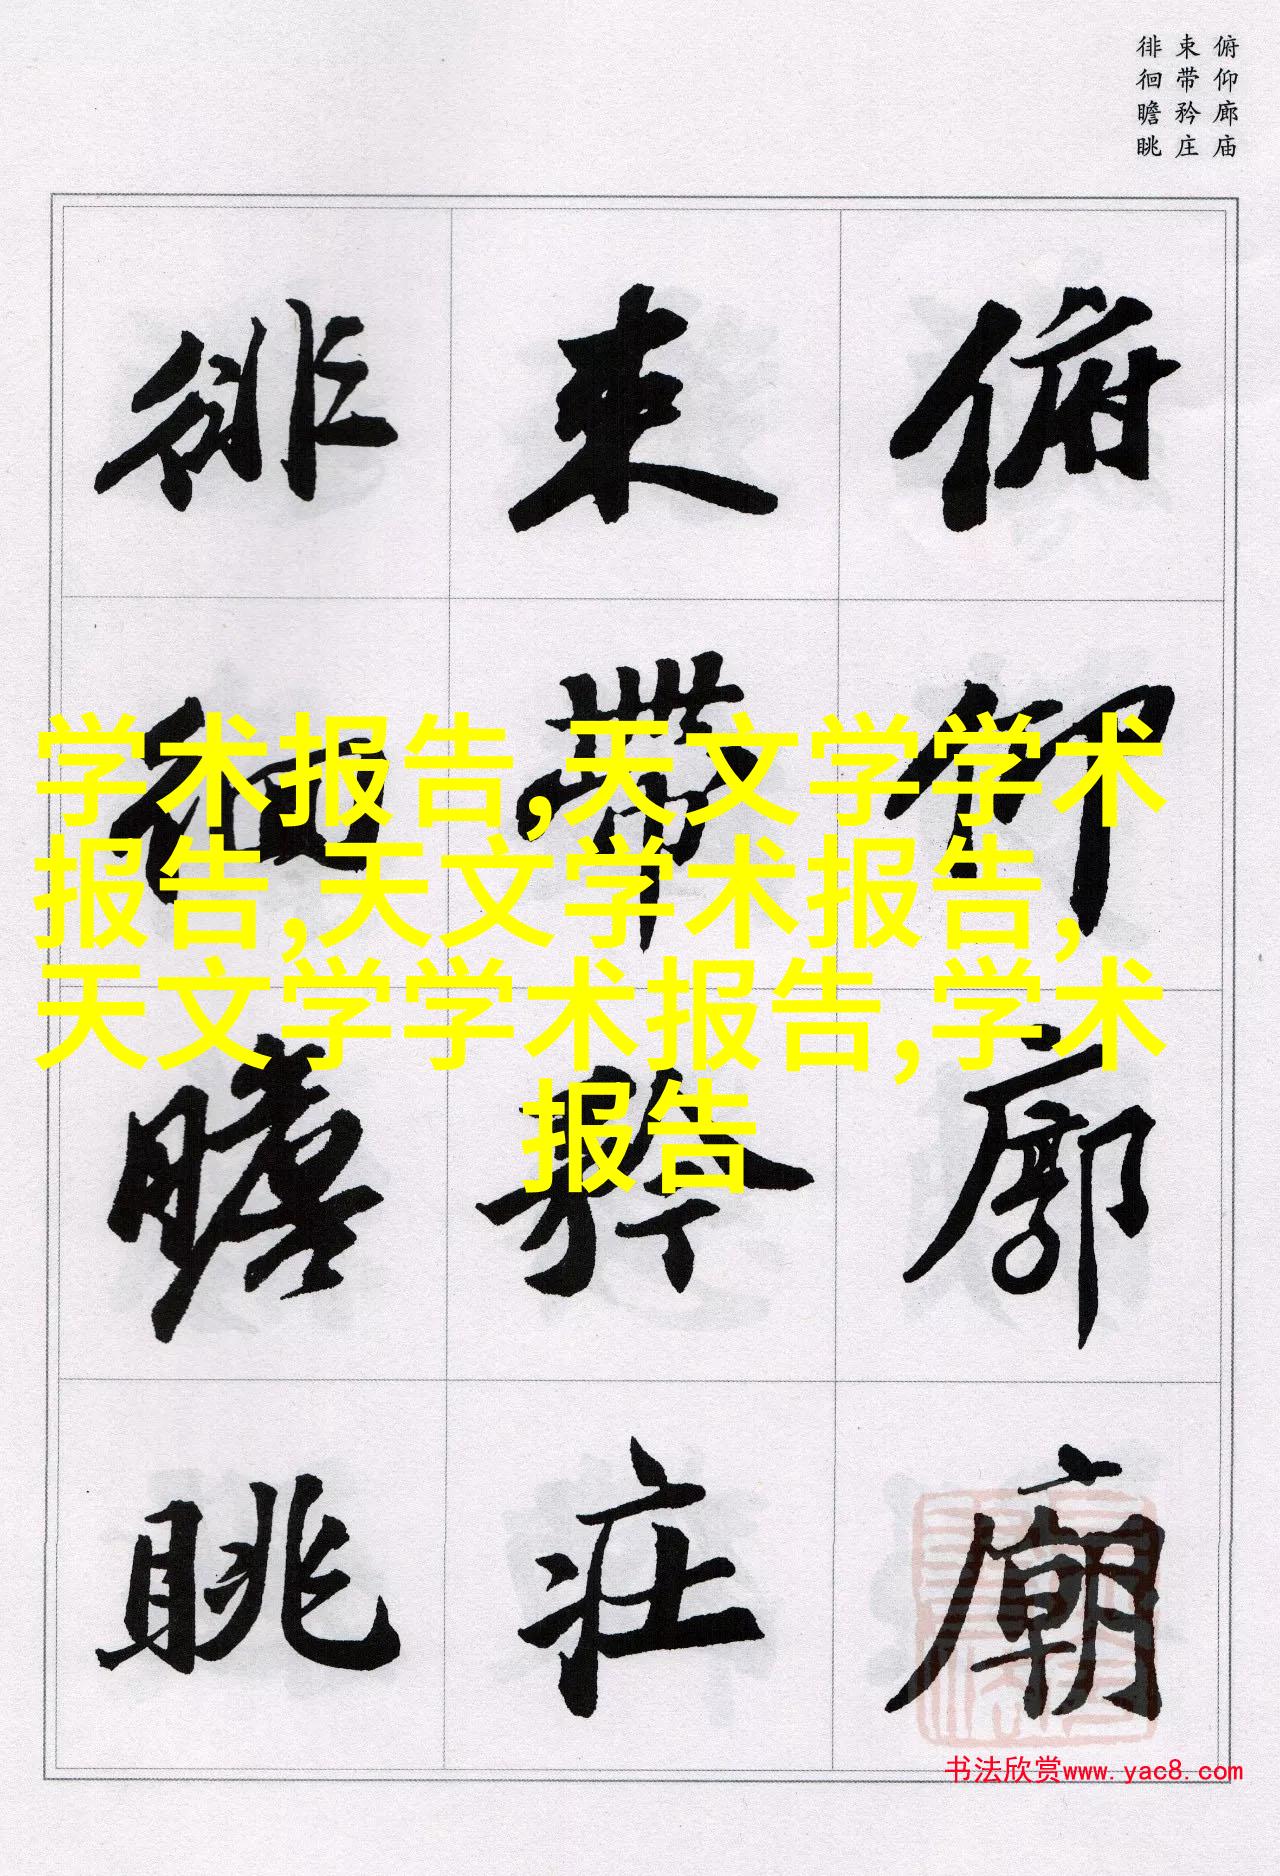 俯仰廊庙
束带矜庄
徘徊瞻眺
俯仰廊廟
束帶矜莊
徘徊瞻眺
学术报告,天文学学术
报告,天文学术报告,
天文学学术报告,学术
报告
书法欣赏www.yac8.com